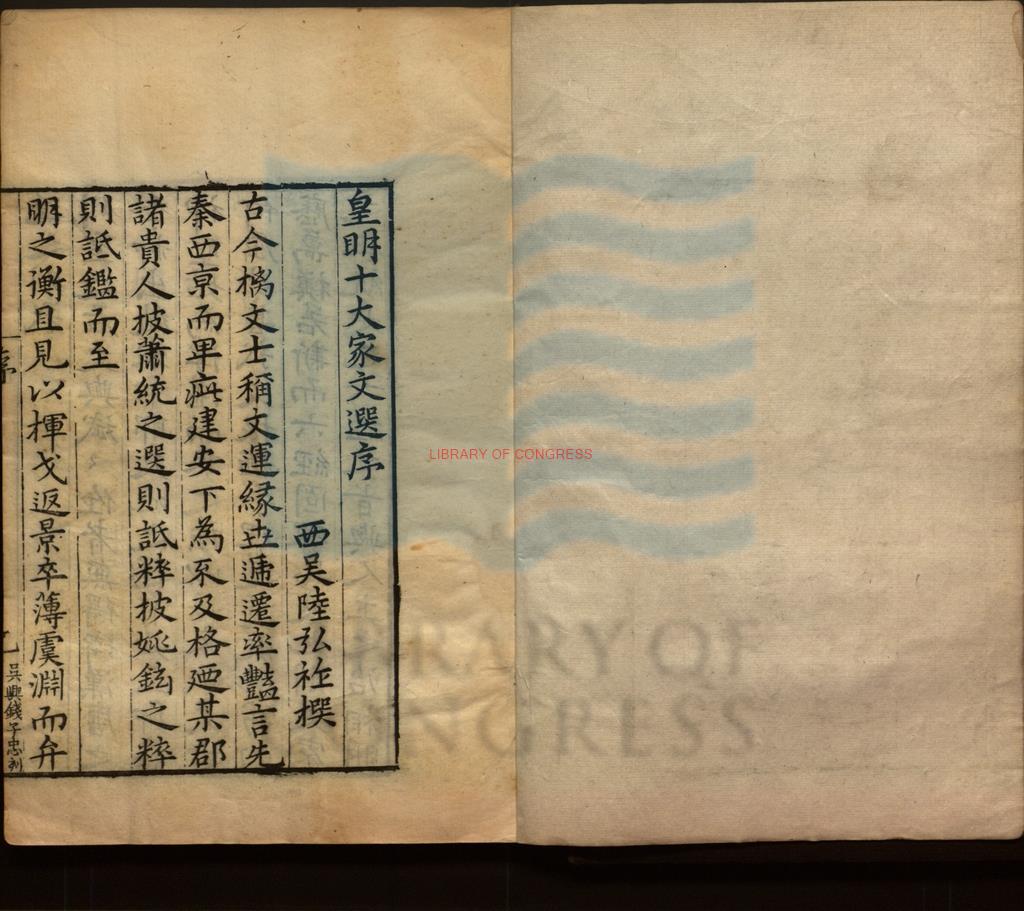 皇明十大家文選序
西吴陸弘祚撰
古今槁文士稱文運緣丗遞遷率豔言先
秦西京而卑疵建安下為不及格廼某郡
諸貴人披蕭統之選則詆粹披姚鉉之粹
則詆鑑而至
明之衡且見以揮戈返景卒薄虞淵而弁
序
吳興錢子忠刻
LIBRARY OF CONGRESS
LIBRARY OF
CONGRESS